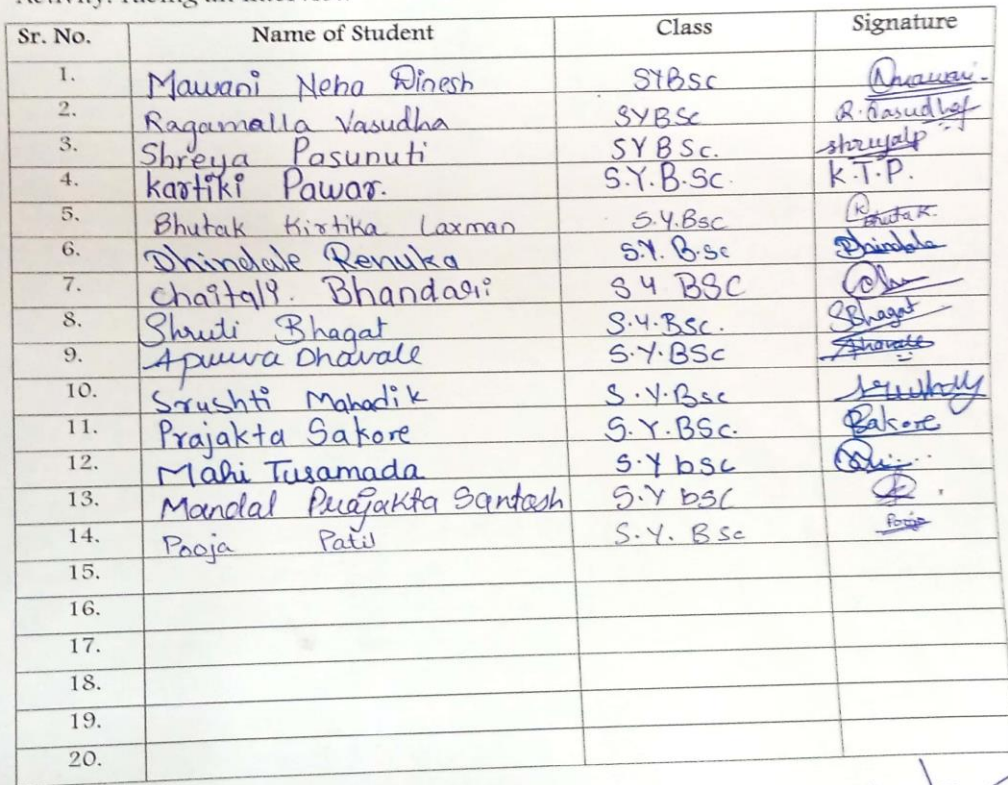 Sr. No. Name of Student Class Signature
1. Mawani Neha Dinesh SYBSc
2. Ragamalla Vasudha SYBSc R.
3. Shreya Pasunuti SYBSc.
4. Kartiki Pawar. S.Y.B.Sc. K.T.P.
5. Bhutak Kirtika Laxman S.Y.Bsc Bhutak.
6. Dhindale Renuka S.Y. B.sc Dhindale
7. Chaitaly. Bhandari SY BSC
8. Shruti Bhagat S.Y.BSc. SBhagat
9. Apurva Dhavale S.Y.BSc
10. Srushti Mahadik S.Y.Bsc
11. Prajakta Sakore S.Y.BSc. Sakore
12. Mahi Tusamada S.Y bsc
13. Mandal Prajakta Santosh S.Y bsc
14. Pooja Patil S.Y. BSc Pooja
15.
16.
17.
18.
19.
20.